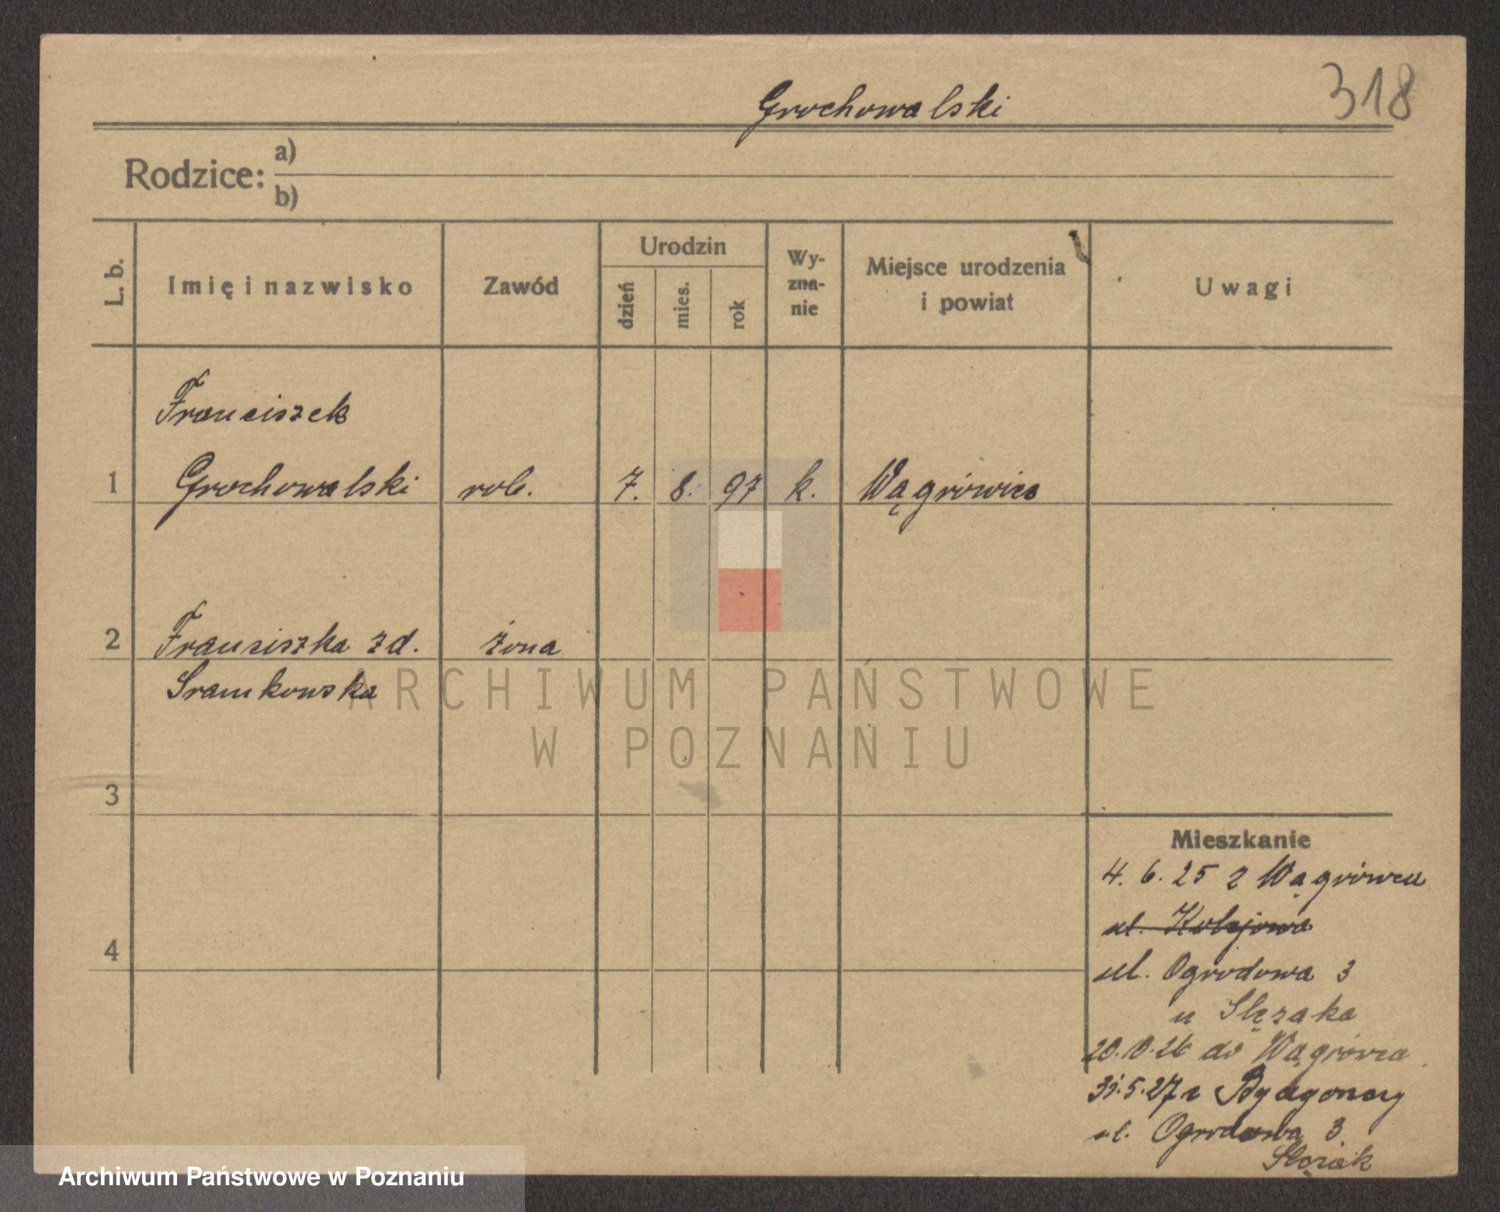 Grochowalski 318
Rodzice: a)
b)
L. b. Imię i nazwisko Zawód Urodzin dzień mies. rok Wy-zna-nie Miejsce urodzenia i powiat Uwagi
Franciszek
1 Grochowalski rob. 7. 8. 97 k. Wągrówiec
2 Franciszka zd. żona
Sramkowska
ARCHIWUM PAŃSTWOWE
W POZNANIU
3
4
Mieszkanie
4. 6. 25 z Wągrówcu
ul. Kolejowa
ul. Ogrodowa 3
u Ślęzaka
20.10.26 do Wągrówca
31.5.27 z Bydgoszcy
ul. Ogrodowa 3
Ślęzak
Archiwum Państwowe w Poznaniu